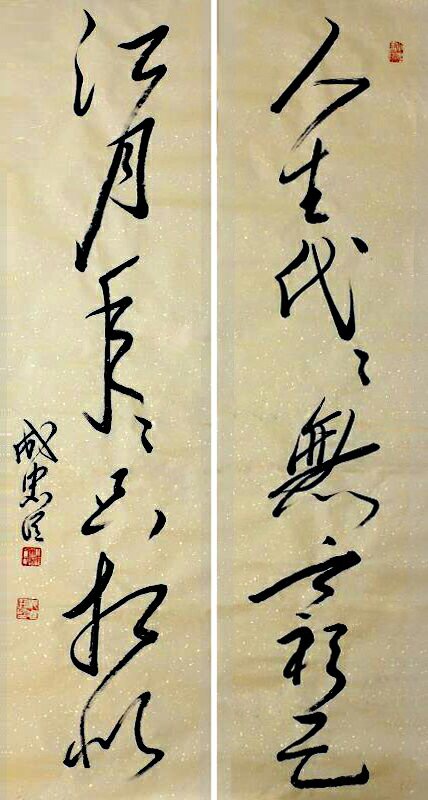 人生代々無窮已
江月年々只相似
成忠臣